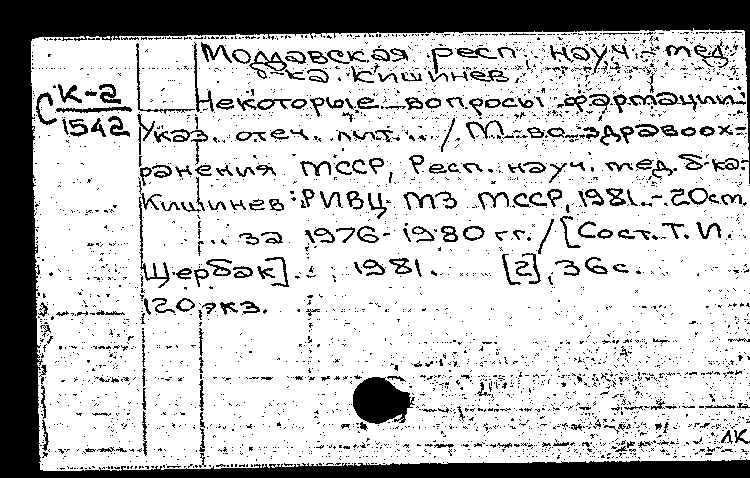 Молдавская респ. науч.-мед.
б-ка Кишинев.
С К-2
1542
Некоторые вопросы фармации:
Указ. отеч. лит... / М-во здравоох-
ранения МССР, Респ. науч. мед. б-ка.-
Кишинев: РИВЦ МЗ МССР, 1981. - 20 см.
... за 1976-1980 гг. / [Сост. Т. И.
Щербак]. 1981. [2], 36 с.
120 экз.
ЛК